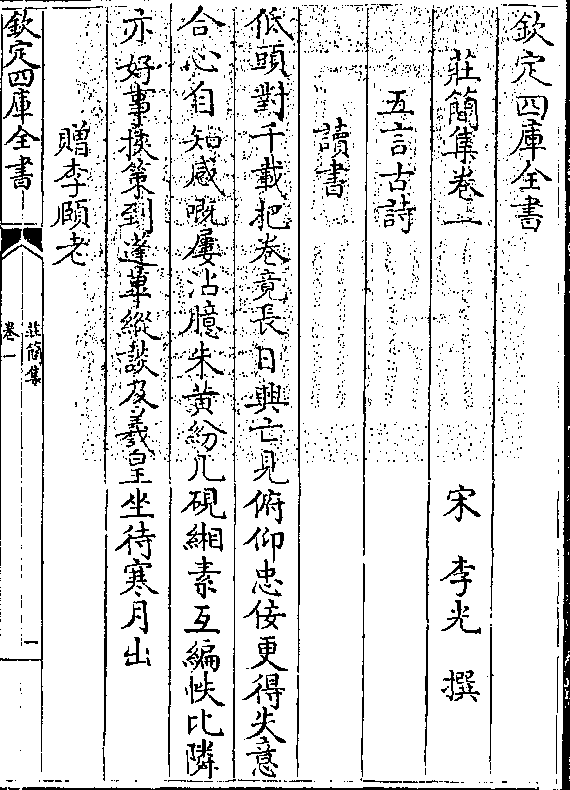 欽定四庫全書
莊簡集卷一
宋　李光　撰
五言古詩
讀書
低頭對千載把卷竟長日興亡見俯仰忠佞更得失意
合心自知感嘅屢沾臆朱黄紛几硯緗素互編帙比隣
亦好事挾策到蓬蓽縱談及羲皇坐待寒月出
贈李頤老
欽定四庫全書
莊簡集
卷一
一